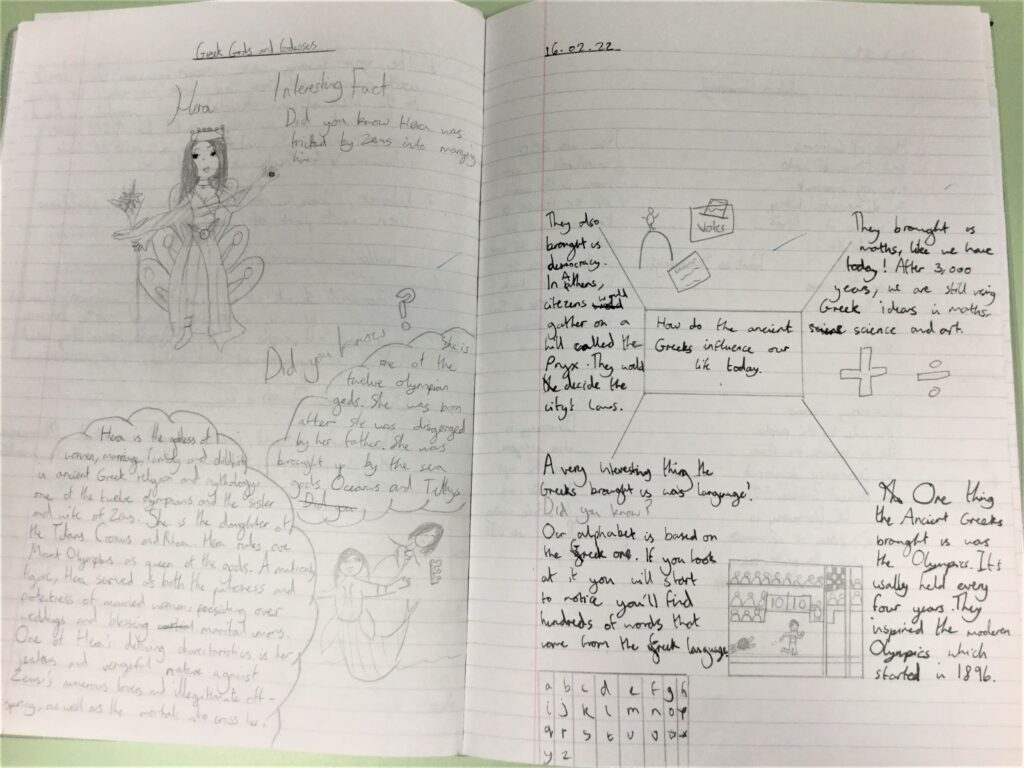 Greek Gods and Godesses
Hera
Interesting Fact
Did you know Hera was
tricked by Zeus into marrying
him.
?
Did you know
She is
one of the
twelve olympian
gods. She was born
after she was disgorged
by her father. She was
brought up by the sea
gods, Oceanus and Tethys
Did you
Hera is the godess of
women, marriage, family and
in ancient Greek religion and mythology
one of the twelve olympians and the sister
and wife of Zeus. She is the daughter of
the Titans Cronus and Rhea. Hera rules over
Mount Olymphus as queen of the gods. A matronly
figure, Hera served as both the patroness and
protectress of married women, presiding over
weddings and blessing marital unions.
One of Hera's defining characteristics is her
jealous and vengeful nature against
Zeus's numerous lovers and illegitimate off-
spring, as well as the mortals who cross her.
16.02.22
They also
brought us
democracy.
In Athens,
citezens would
gather on a
hill called the
Pnyx. They would
decide the
city's laws.
Votes
They brought us
maths, like we have
today! After 3,000
years, we are still using
Greek ideas in maths,
science and art.
How do the ancient
Greeks influence our
life today.
A very interesting thing the
Greeks brought us was language!
Did you know?
Our alphabet is based on
the Greek one. If you look
at it you will start
to notice you'll find
hundreds of words that
come from the Greek language
a b c d e f g h
i j k l m n o p
q r s t u v
y z
10 10
One thing
the Ancient Greeks
brought us was
the Olympics. It's
usally held every
four years. They
inspired the moderen
Olympics which
started in 1896.